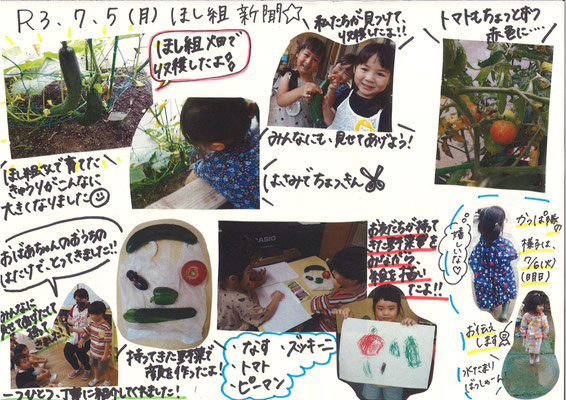 R3.7.5(月) ほし組新聞☆
ほし組畑で
収穫したよ!!
私たちが見つけて、
収穫したよ!!
トマトもちょっとずつ
赤色に…
ほし組さんで育てた
きゅうりがこんなに
大きくなりました
みんなにも、見せてあげよう!
はさみでちょっきん
おばあちゃんのおうちの
はたけで、とってきました!!
みんなに
見せてあげたくて
持って
きたよ!
持ってきた野菜で
顔を作ったよ!
一つひとつ、丁寧に紹介してくれました!
CASIO
お友だちが持って
きた野菜を
みながら、
絵を描い
たよ!!
・なす ・ズッキーニ
・トマト
・ピーマン
嬉しいな♡
かっぱ隊の
様子は、
7/6(火)
(明日)
お伝え
します
水たまり
ばっしゃーん!